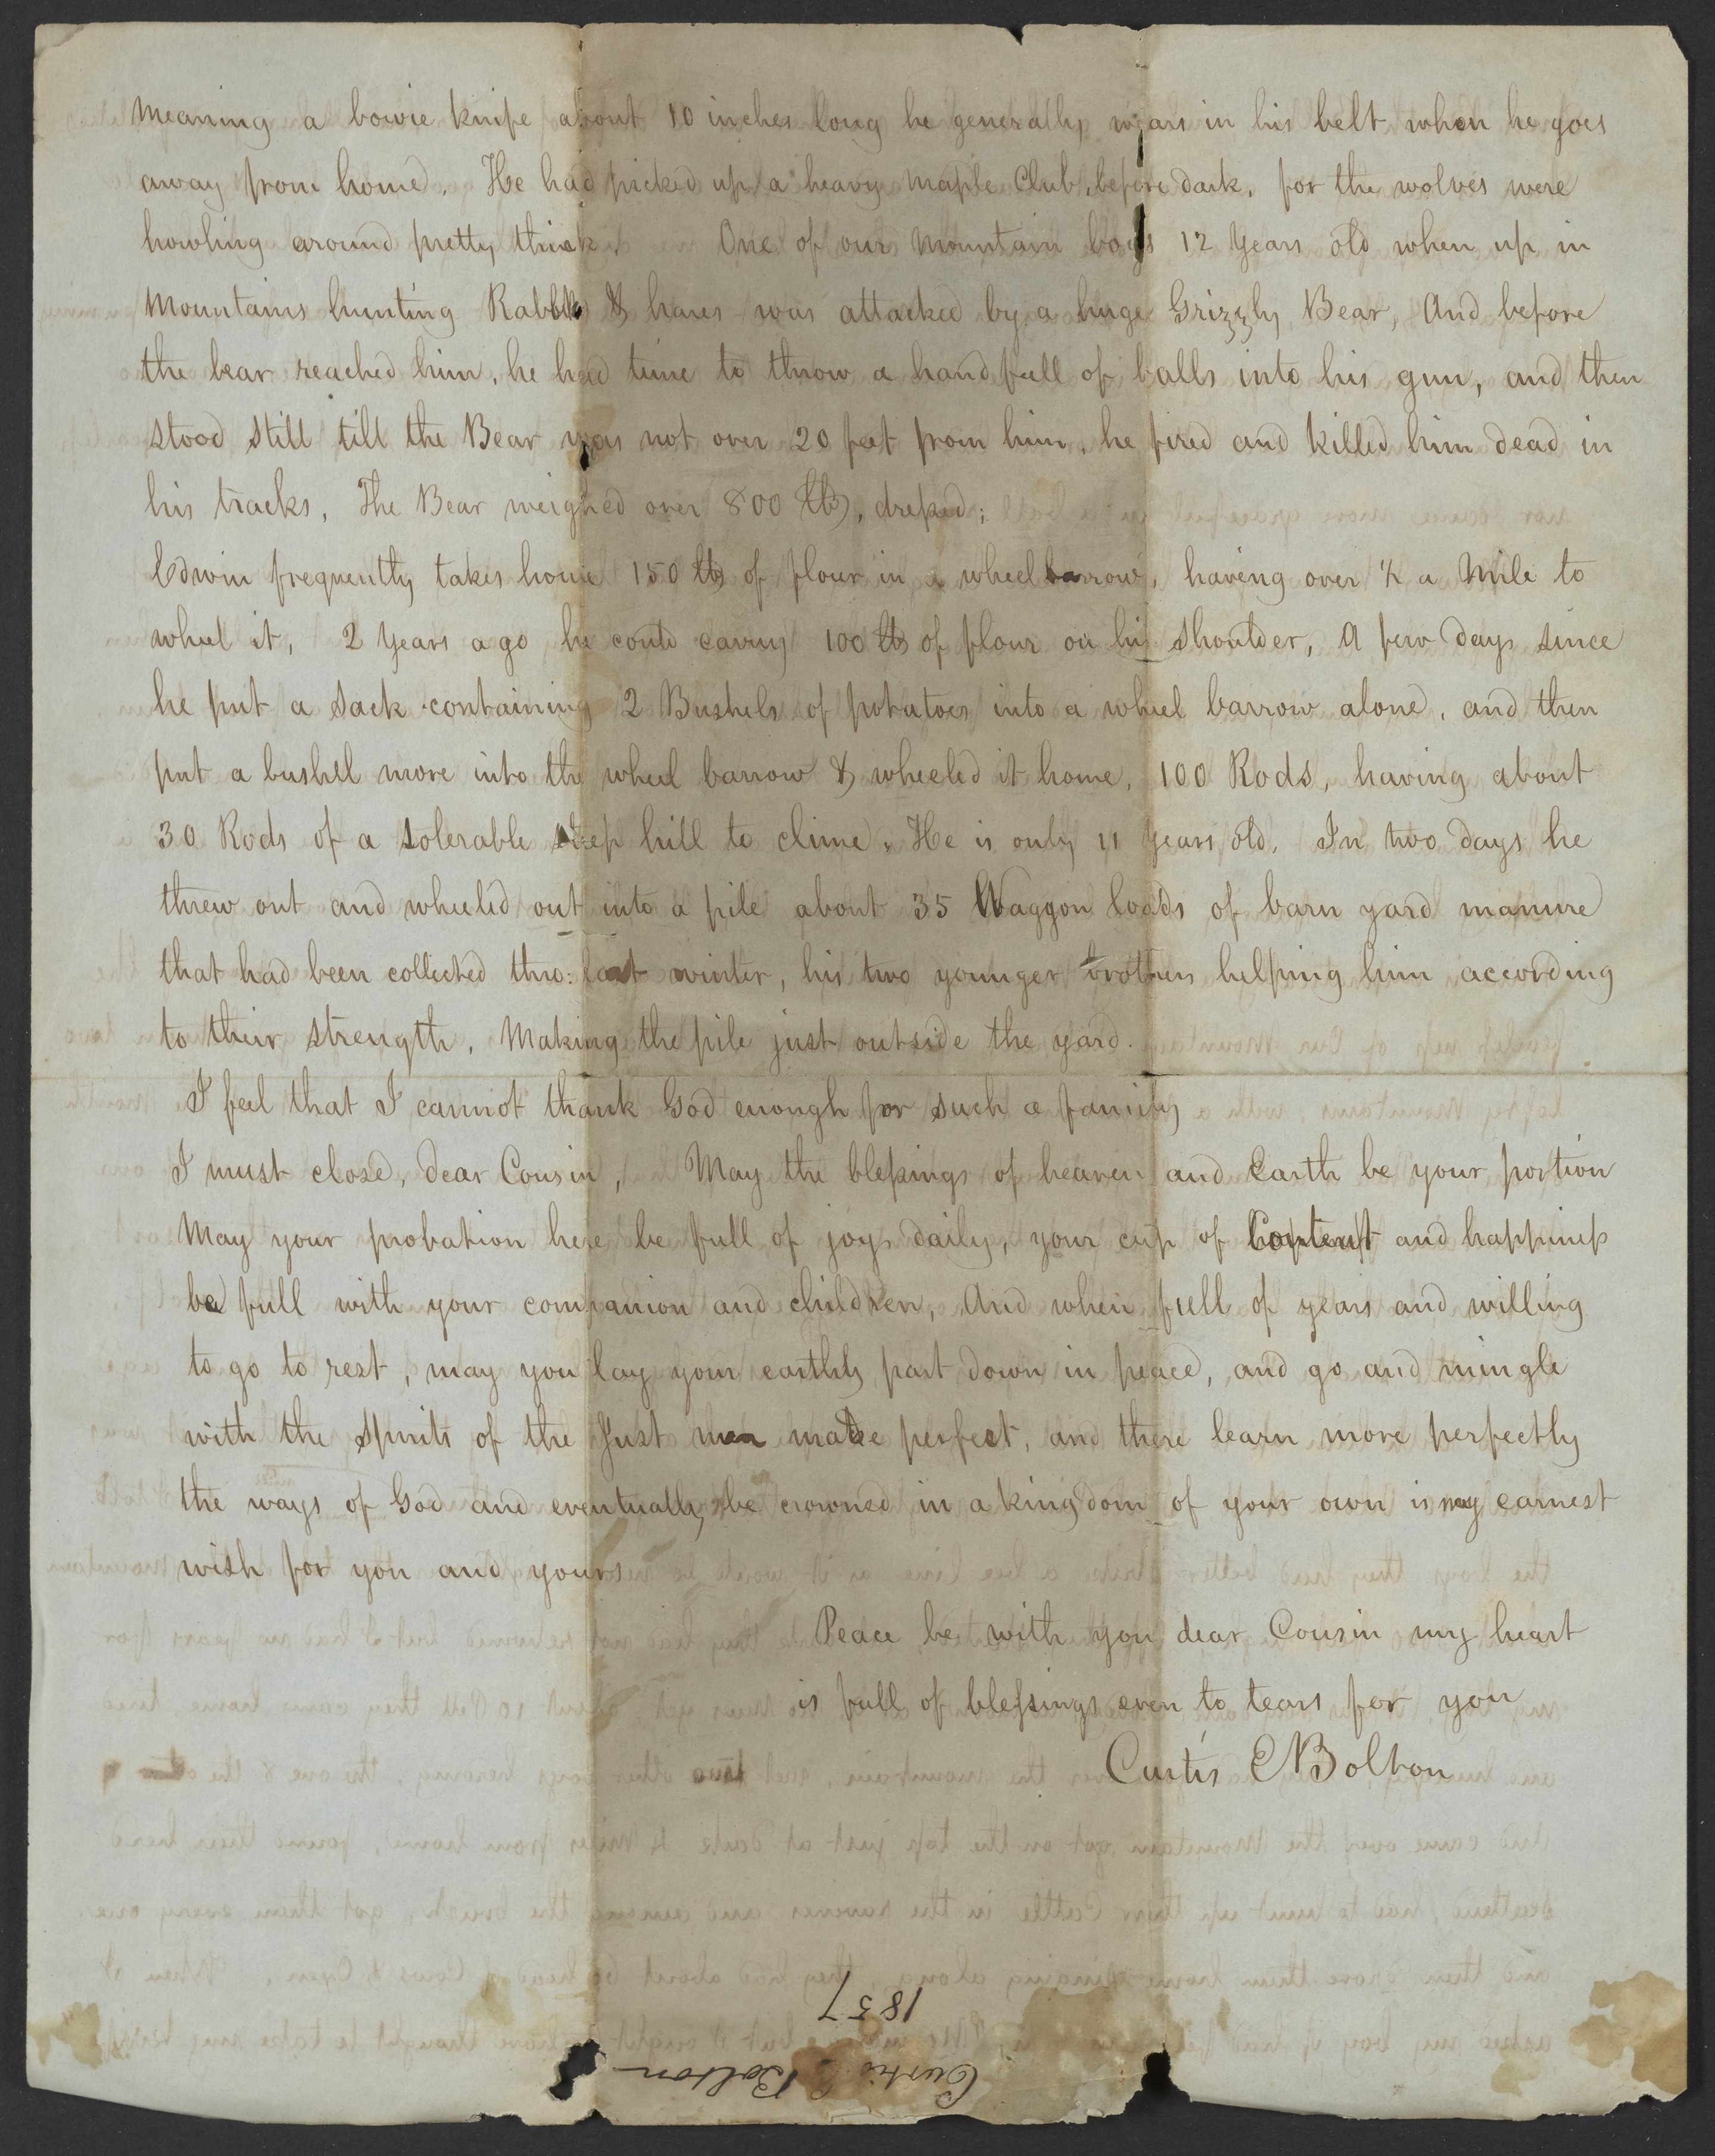 meaning a bowie knife about 10 inches long he generally wears in his belt when he goes
away from home. He had picked up a heavy maple Club, before dark, for the wolves were
howling around pretty thick. One of our mountain boys 12 Years old when up in
Mountains hunting Rabbits & hares was attacked by a huge Grizzly Bear, And before
the bear reached him, he had time to throw a handfull of balls into his gun, and then
stood still till the Bear was not over 20 feet from him, he fired and killed him dead in
his tracks, The Bear weighed over 800 lbs, dressed;
Edwin frequently takes home 150 lbs of flour in a wheel barrow, having over ½ a Mile to
wheel it, 2 Years ago he could carry 100 lbs of flour on his shoulder, A few days since
he put a sack containing 2 Bushels of potatoes into a wheel barrow alone, and then
put a bushel more into the wheel barrow & wheeled it home, 100 Rods, having about
30 Rods of a tolerable steep hill to clime. He is only 11 years old. In two days he
threw out and wheeled out into a pile about 35 Waggon loads of barn yard manure
that had been collected thro: last winter, his two younger brothers helping him according
to their strength, Making the pile just outside the yard.
I feel that I cannot thank God enough for such a family
I must close, dear Cousin, May the blessings of heaven and Earth be your portion
May your probation here be full of joys daily, your cup of Content and happiness
be full with your companion and children, And when full of years and willing
to go to rest, may you lay your earthly part down in peace, and go and mingle
with the spirits of the Just men made perfect, and there learn more perfectly
the ways of God and eventually be crowned in a kingdom of your own is my earnest
wish for you and yours
Peace be with you dear Cousin my heart
is full of blessings even to tears for you
Curtis E Bolton
1857
Curtis E Bolton